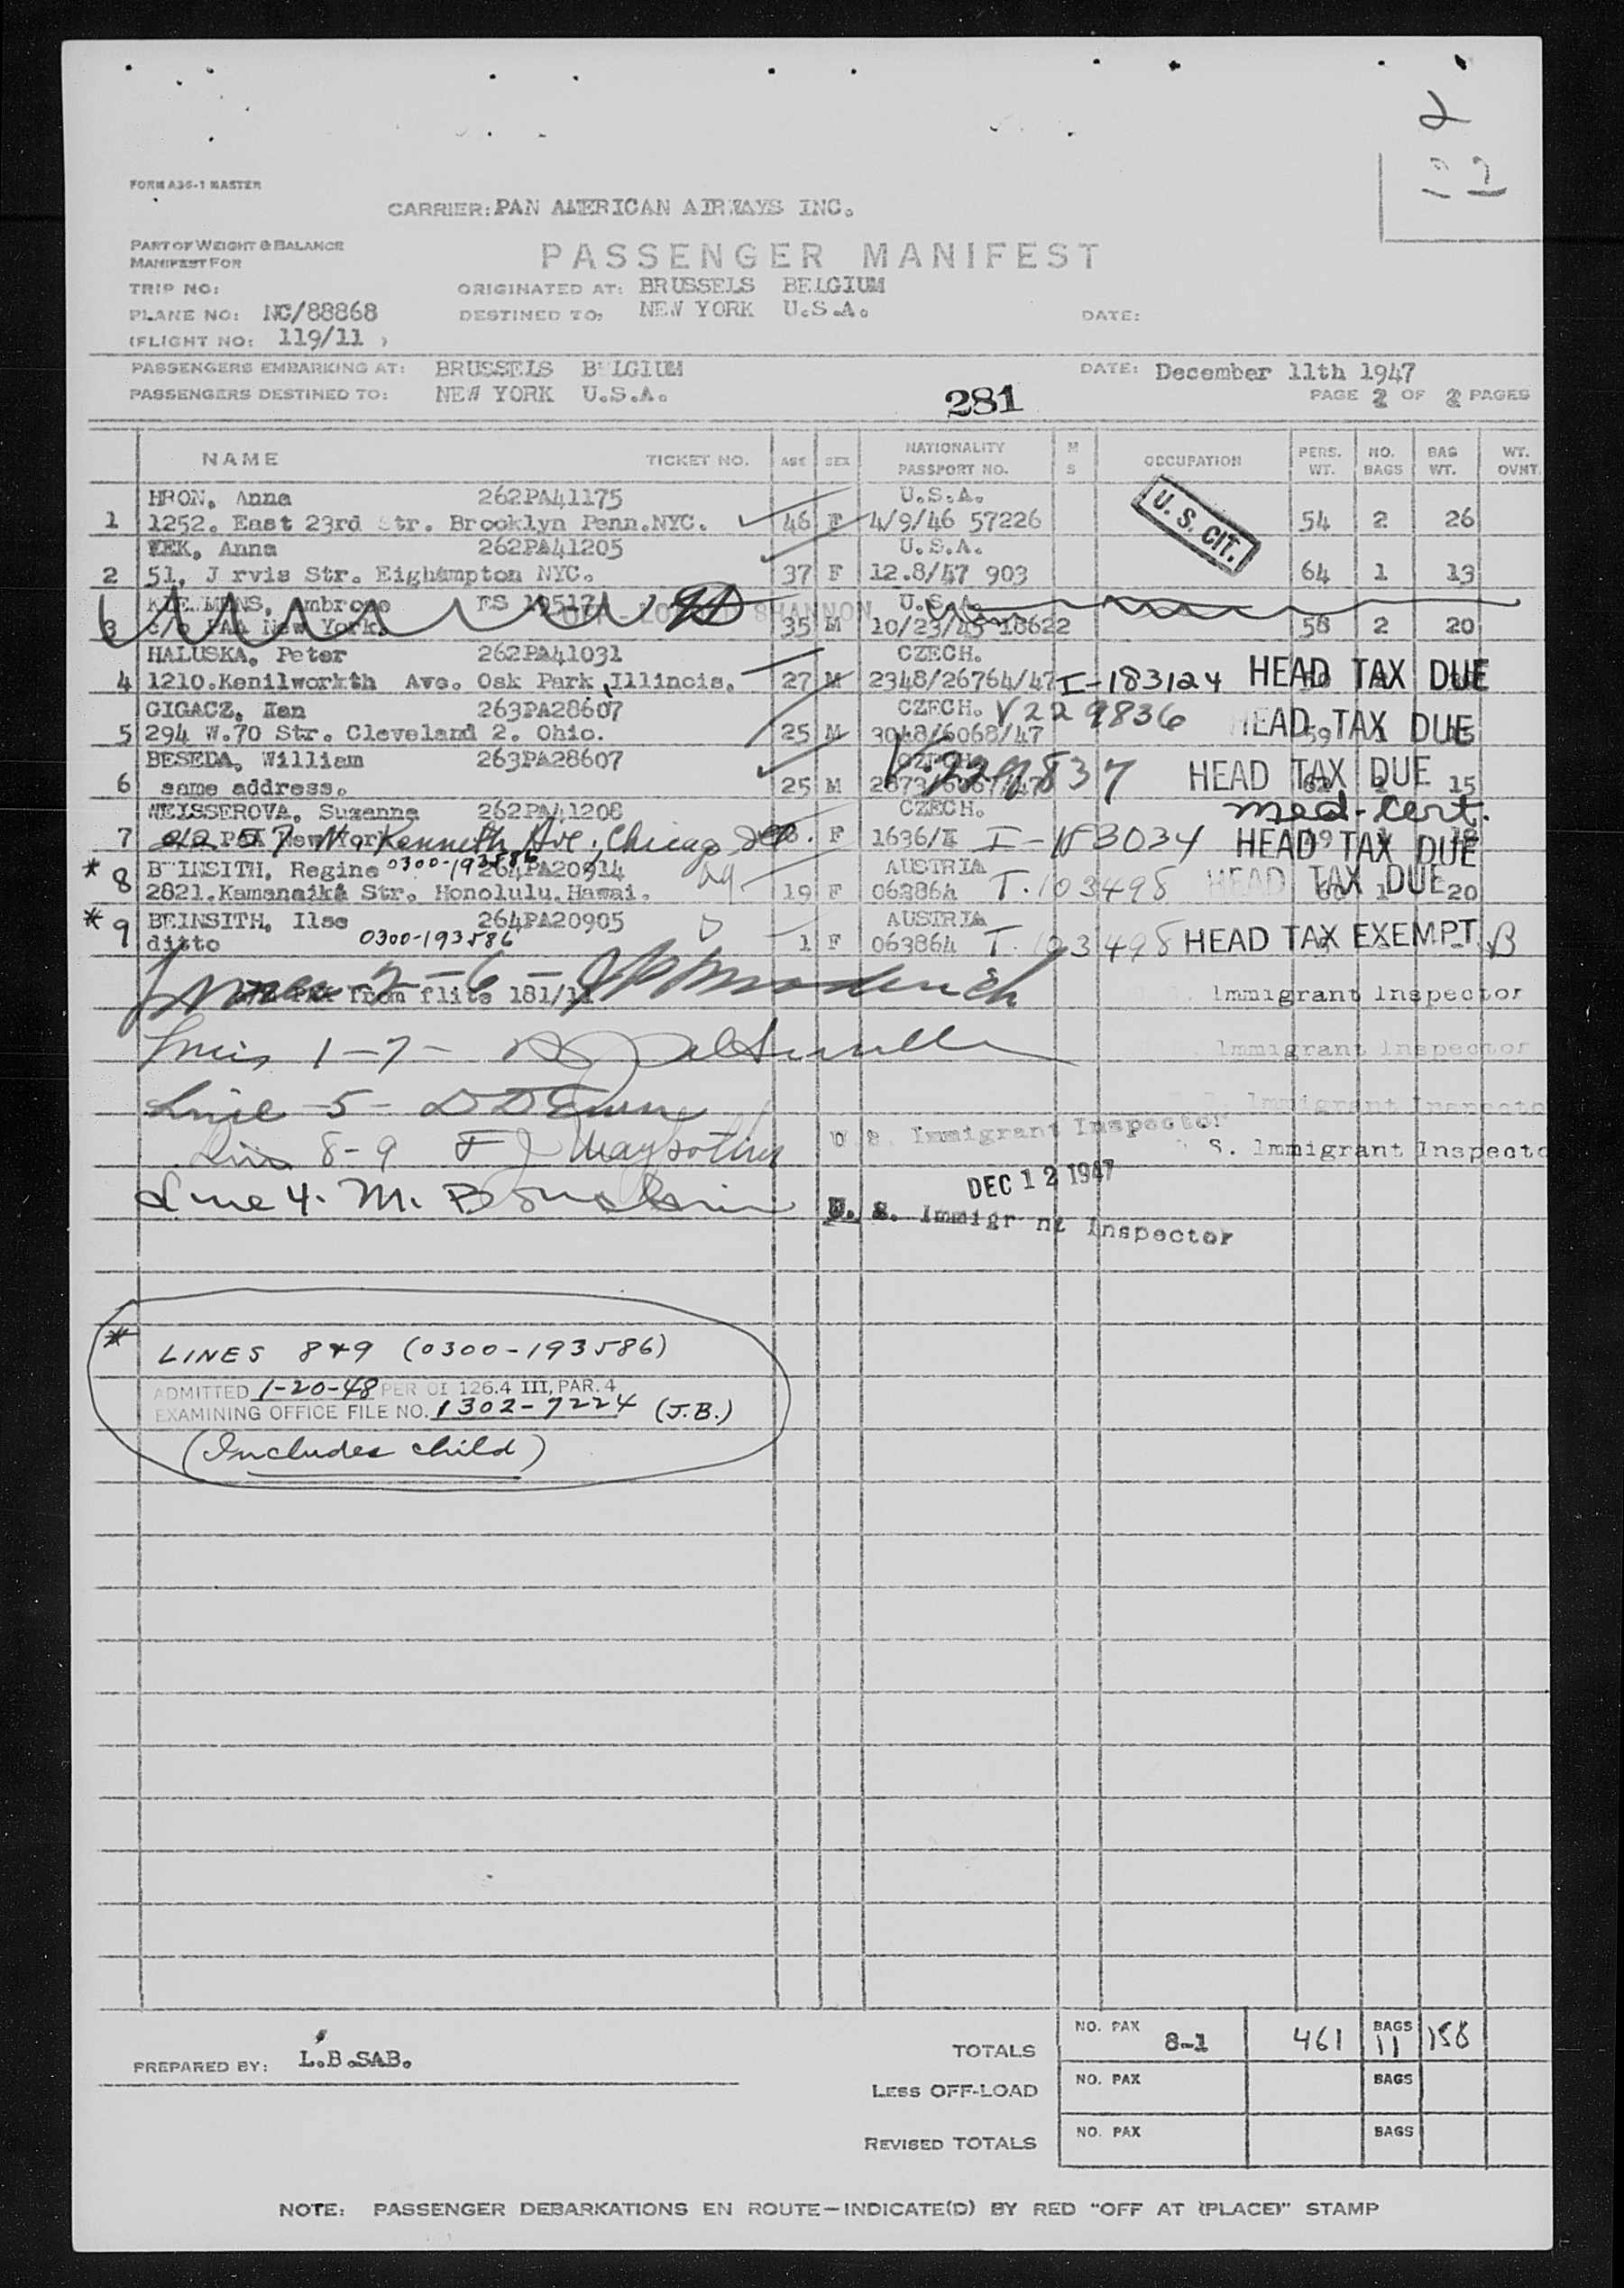 2
FORM A36-1 MASTER
CARRIER: PAN AMERICAN AIRWAYS INC.
PART OF WEIGHT & BALANCE
MANIFEST FOR
PASSENGER MANIFEST
TRIP NO:
ORIGINATED AT: BRUSSELS BELGIUM
PLANE NO: NC/88868
DESTINED TO: NEW YORK U.S.A.
DATE:
(FLIGHT NO: 119/11 )
PASSENGERS EMBARKING AT: BRUSSELS B LGIUM
DATE: December 11th 1947
PASSENGERS DESTINED TO: NEW YORK U.S.A.
281
PAGE 2 OF 2 PAGES
NAME TICKET NO. AGE SEX NATIONALITY PASSPORT NO. M S OCCUPATION PERS. WT. NO. BAGS BAG WT. WT. OVNT.
HRON, Anna 262PA41175 U.S.A.
1 1252. East 23rd Str. Brooklyn Penn.NYC. 46 F 4/9/46 57226 U. S. CIT. 54 2 26
Anna 262PA41205 U.S.A.
2 51, J rvis Str. Eighampton NYC. 37 F 12.8/47 903 64 1 13
SHANNON U.S.A.
3 c/o PAA New York. 35 M 10/23/45 18622 58 2 20
HALUSKA, Peter 262PA41031 CZECH.
4 1210.Kenilworkth Ave. Oak Park, Illinois. 27 M 2348/26764/47 I-183124 HEAD TAX DUE
GIGACZ, 263PA28607 CZECH. V229836
5 294 W.70 Str. Cleveland 2. Ohio. 25 M 3048/6068/47 HEAD TAX DUE
BESEDA, William 263PA28607
6 same address. 25 M V-229837 HEAD TAX DUE 15
WEISSEROVA, Suzanne 262PA41208 CZECH. med-cert.
7 N. Kenneth Ave, Chicago Ill F 1636/ I-183034 HEAD TAX DUE
* 8 B INSITH, Regine 0300-193586 264PA20914 AUSTRIA
2821.Kamanaika Str. Honolulu.Hawai. 19 F 063864 T.103498 HEAD TAX DUE 20
* 9 BEINSITH, Ilse 264PA20905 AUSTRIA
ditto 0300-193586 1 F 063864 T.103498 HEAD TAX EXEMPT
2-6- from flite 181/11 Immigrant Inspector
Lines 1-7- Immigrant Inspector
Line 5- Immigrant Inspector
8-9 U S. Immigrant Inspector
S. Immigrant Inspecto
Line 4. M. DEC 12 1947
U. S. Immigr nt Inspector
* LINES 8&9 (0300-193586)
ADMITTED 1-20-48 PER OI 126.4 III, PAR. 4
EXAMINING OFFICE FILE NO. 1302-7224 (J.B.)
(Includes child)
PREPARED BY: L.B.SAB.
TOTALS NO. PAX 8-1 461 BAGS 11 158
LESS OFF-LOAD NO. PAX BAGS
REVISED TOTALS NO. PAX BAGS
NOTE: PASSENGER DEBARKATIONS EN ROUTE—INDICATE(D) BY RED "OFF AT (PLACE)" STAMP